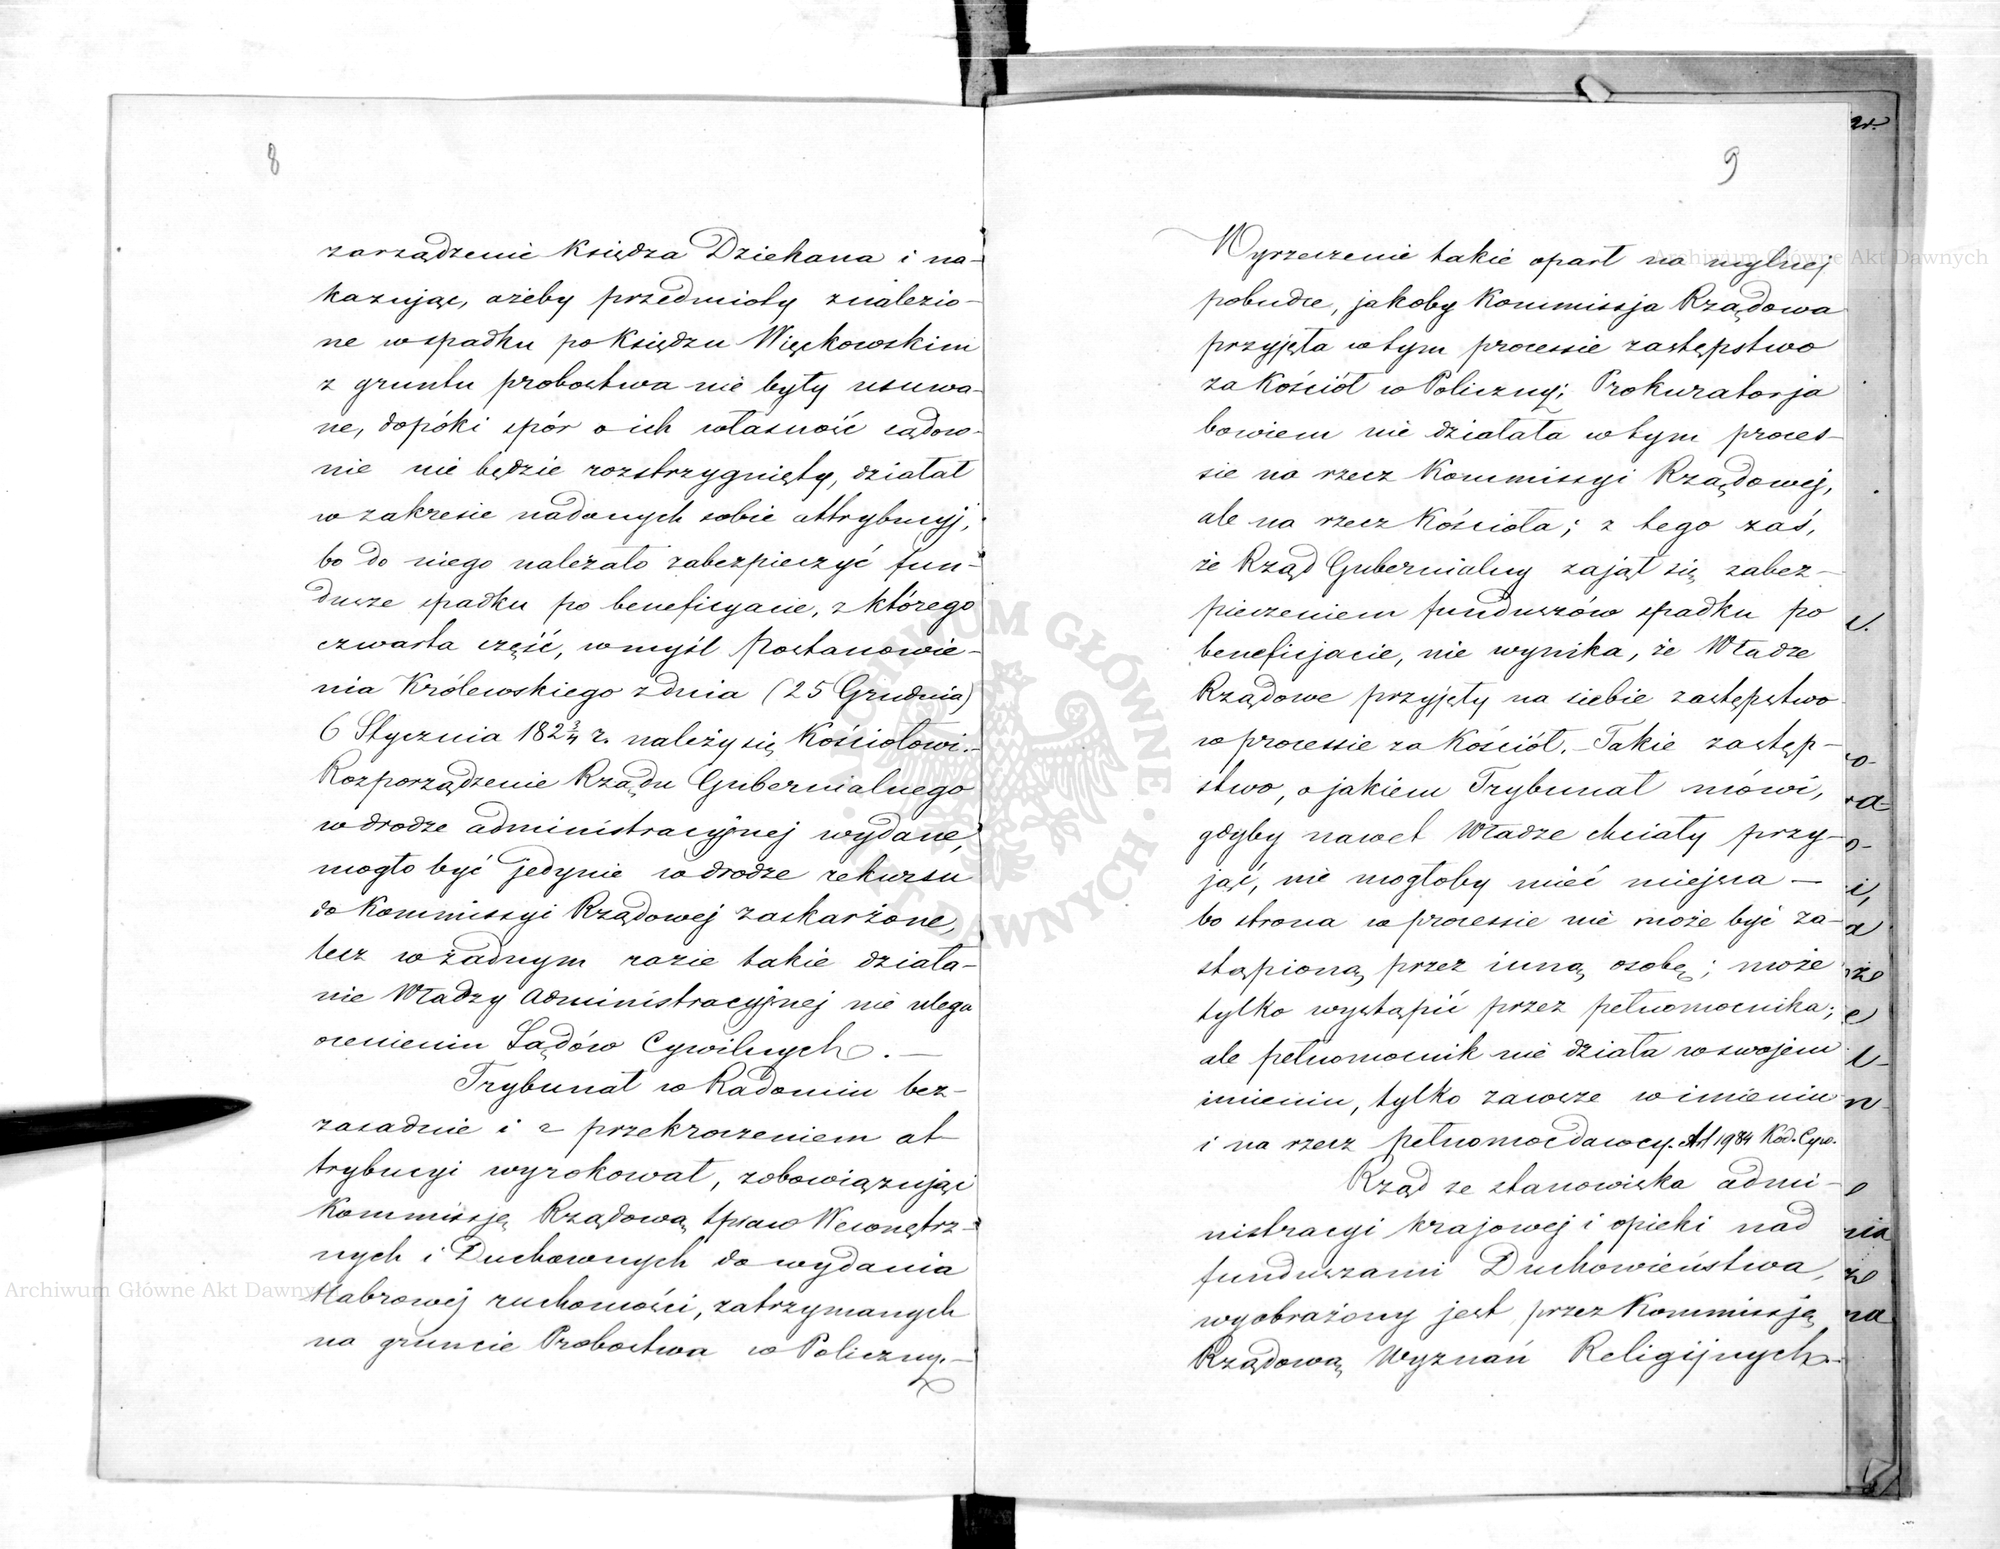 8
zarządzenie Księdza Dziekana i na-
kazując, ażeby przedmioty znalezio-
ne w spadku po Księdzu Więckowskim
z gruntu probostwa nie były usuwa-
ne, dopóki spór o ich własność sądow-
nie nie będzie rozstrzygnięty, działał
w zakresie nadanych sobie attrybucyj,
bo do niego należało zabezpieczyć fun-
dusze spadku po beneficyacie, z którego
czwarta część, w myśl Postanowie-
nia Królewskiego z dnia (25 Grudnia)
6 Stycznia 182¾ r. należy się Kościołowi.-
Rozporządzenie Rządu Gubernialnego
w drodze administracyjnej wydane,
mogło być jedynie w drodze rekursu
do Kommissyi Rządowej zaskarżone,
lecz w żadnym razie takie działa-
nie Władzy Administracyjnej nie ulega
ocenieniu Sądów Cywilnych. —
Trybunał w Radomiu bez-
zasadnie i z przekroczeniem at-
trybucyi wyrokował, zobowiązując
Kommissję Rządową Spraw Wewnętrz-
nych i Duchownych do wydania
Habrowej ruchomości, zatrzymanych
na gruncie Probostwa w Policzny.—
9
Wyrzeczenie takie oparł na mylnej
pobudce, jakoby Kommissja Rządowa
przyjęła w tym processie zastępstwo
za Kościół w Policzny; Prokuratorja
bowiem nie działała w tym proces-
sie na rzecz Kommissyi Rządowej,
ale na rzecz Kościoła; z tego zaś,
że Rząd Gubernialny zajął się zabez-
pieczeniem funduszów spadku po
beneficjacie, nie wynika, że Władze
Rządowe przyjęły na siebie zastępstwo
w processie za Kościół. - Takie zastęp-
stwo, o jakiem Trybunał mówi,
gdyby nawet Władze chciały przy-
jąć, nie mogłoby mieć miejsca —
bo strona w processie nie może być za-
stąpioną przez inną osobę; może
tylko wystąpić przez pełnomocnika;
ale pełnomocnik nie działa w swojem
imieniu, tylko zawsze w imieniu
i na rzecz pełnomocdawcy. Art 1984 Kod. Cyw.
Rząd ze stanowiska admi-
nistracyi krajowej i opieki nad
funduszami Duchowieństwa,
wyobrażony jest przez Kommissję
Rządową Wyznań Religijnych
Archiwum Główne Akt Dawnych
Archiwum Główne Akt Dawnych
ARCHIWUM GŁÓWNE AKT DAWNYCH